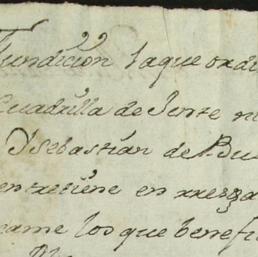 fundicion la que orde
Cuadrilla de Jente
Dsebastian de Bu
entretiene en
came los que benefi